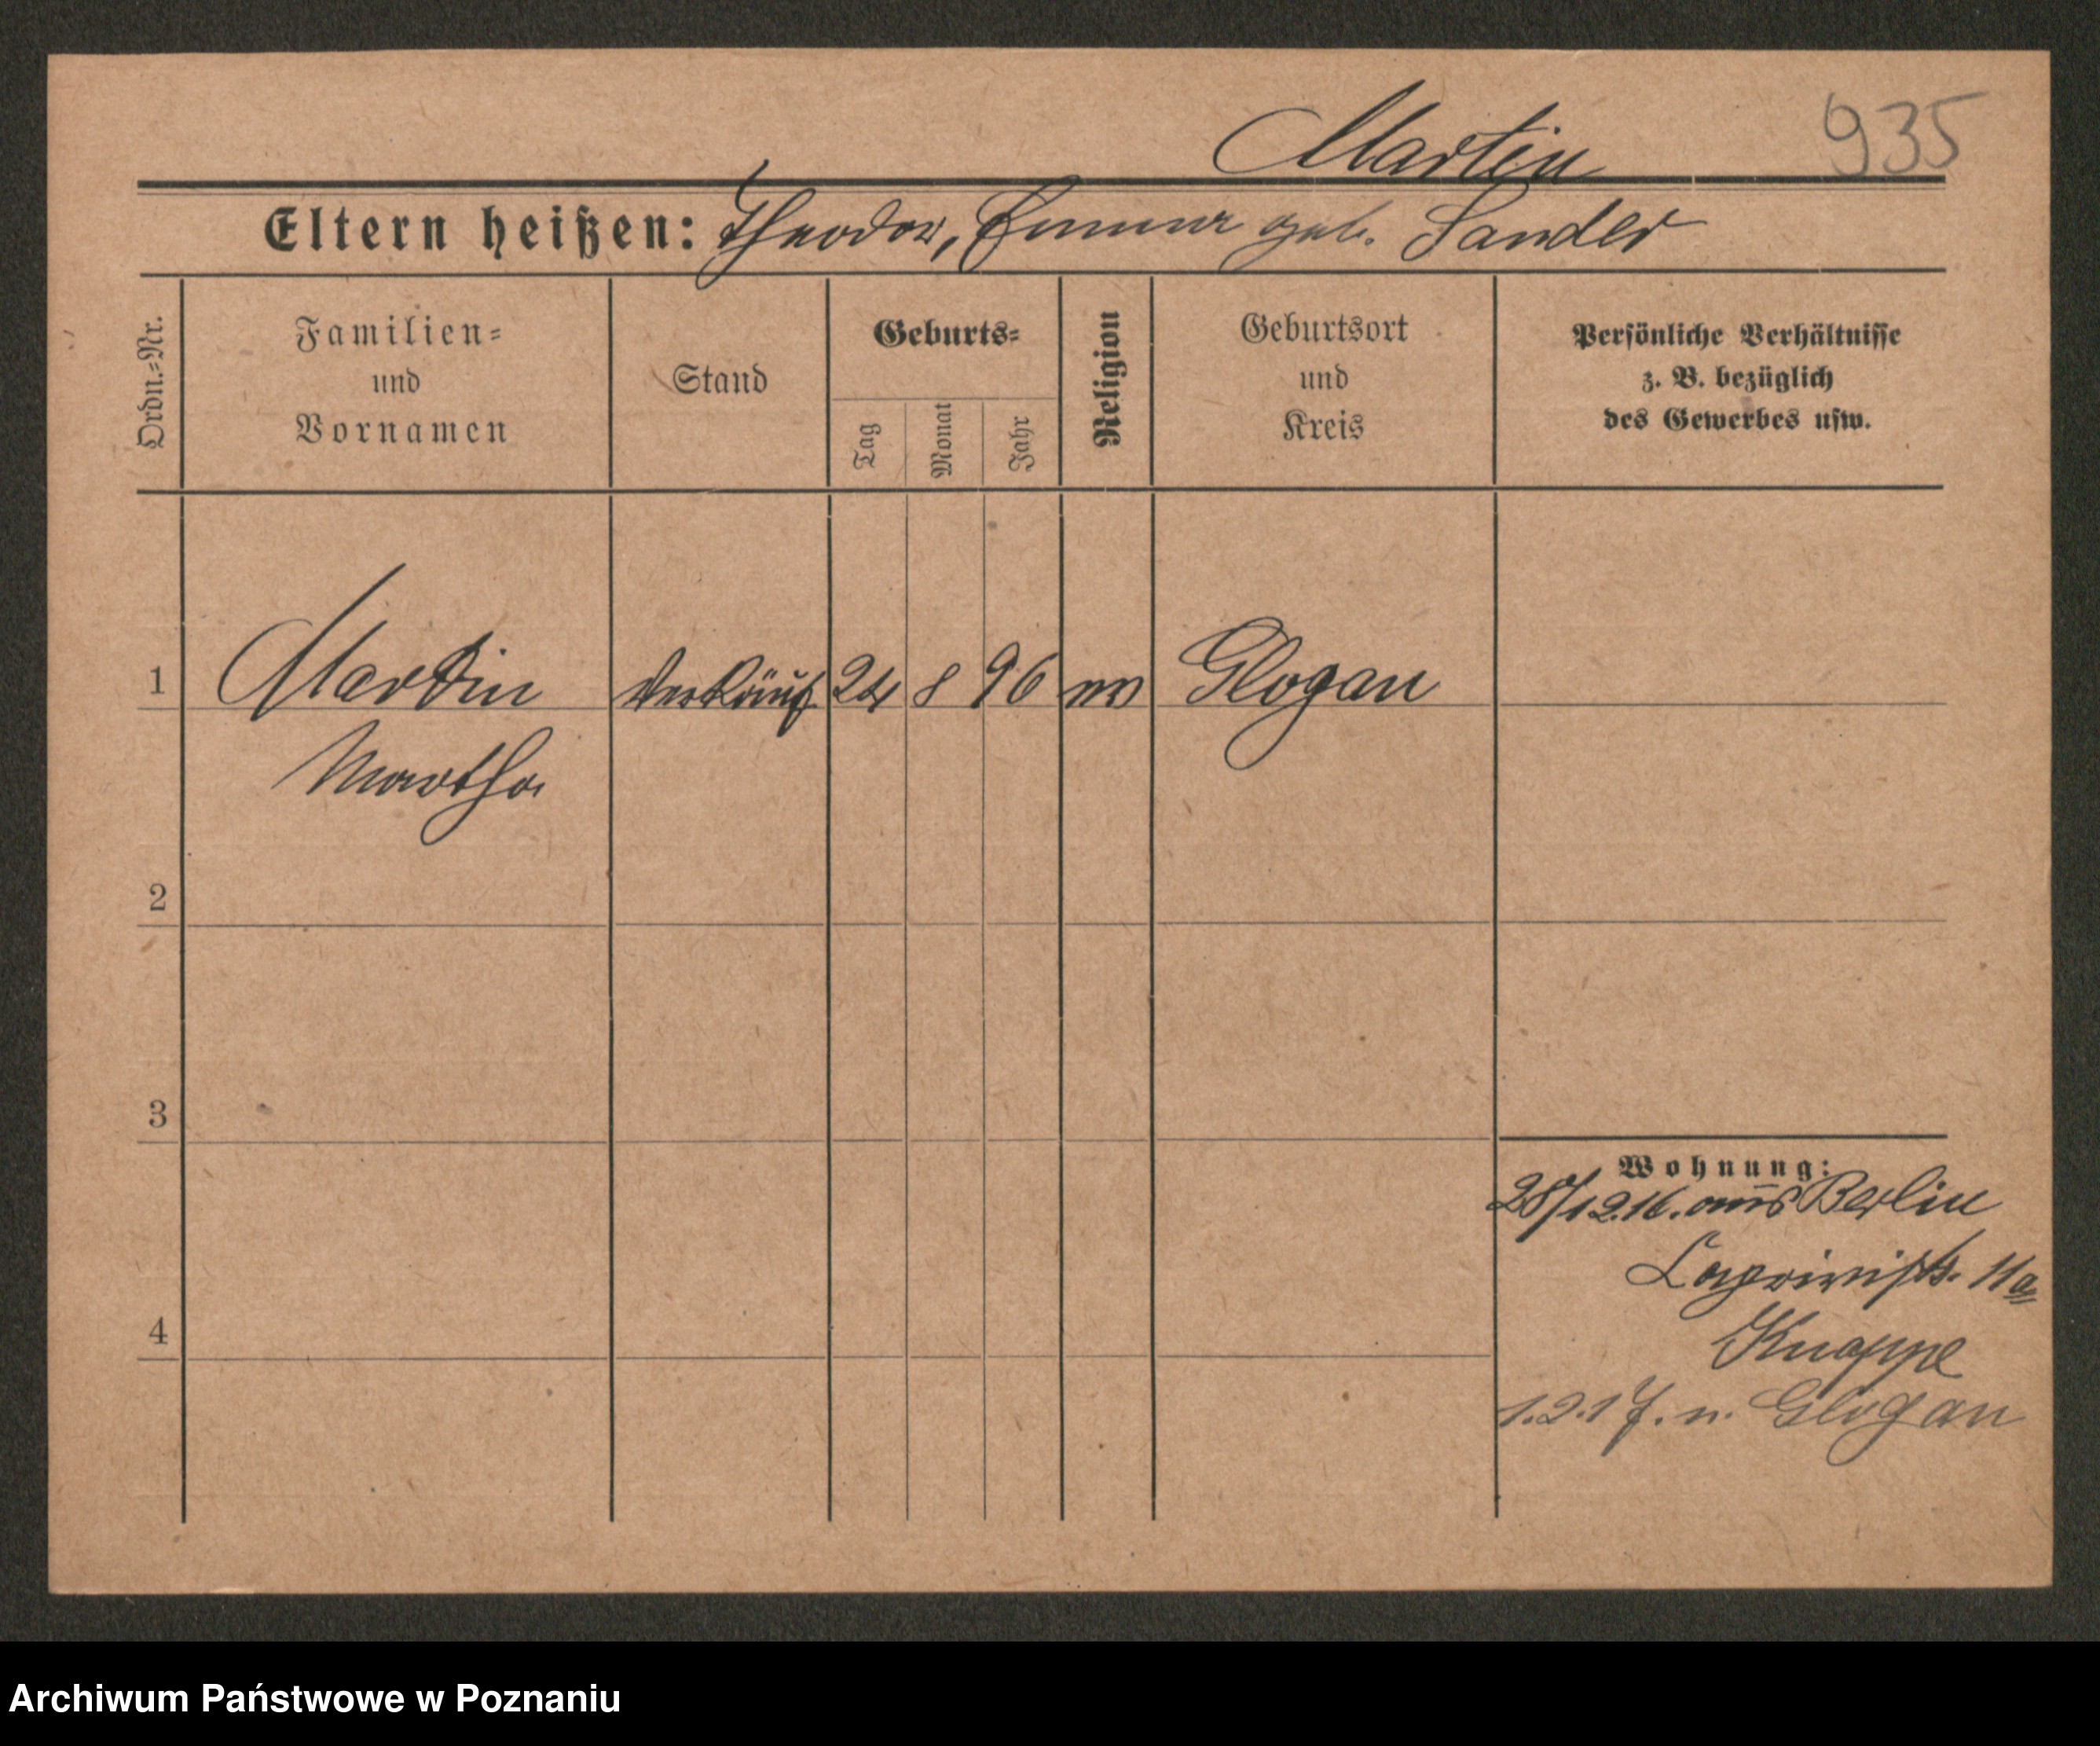 Martin 935
Eltern heißen: Theodor, Emma geb. Sander
Ordn.-Nr.
Familien-
und
Vornamen
Stand
Geburts-
Tag
Monat
Jahr
Religion
Geburtsort
und
Kreis
Persönliche Verhältnisse
z. B. bezüglich
des Gewerbes usw.
1 Martin Verkäuf. 24 8 96 Glogau
Martha
2
3
4
Wohnung:
28/12.16. aus Berlin
Caprivistr. 11a
Knappe
1.2.17. n. Glogau
Archiwum Państwowe w Poznaniu